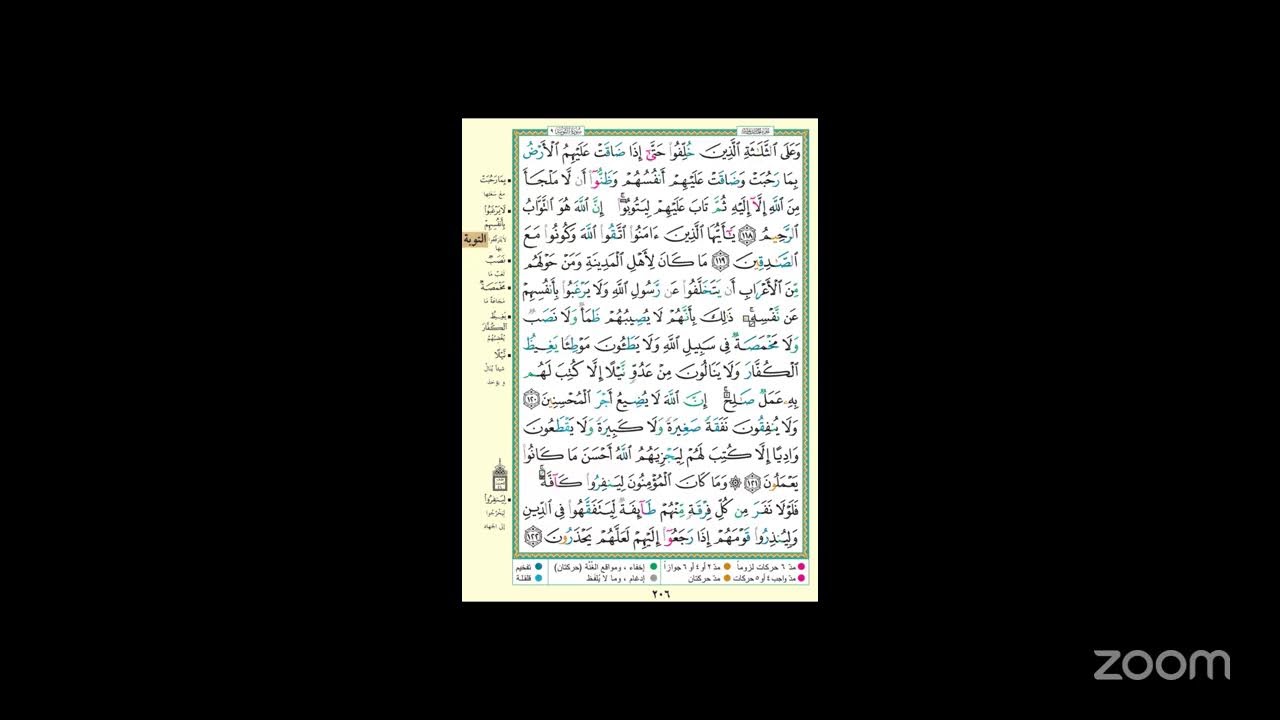 سُورَةُ التَّوْبَةِ ٩
وَعَلَى ٱلثَّلَٰثَةِ ٱلَّذِينَ خُلِّفُوا۟ حَتَّىٰٓ إِذَا ضَاقَتْ عَلَيْهِمُ ٱلْأَرْضُ
بِمَا رَحُبَتْ وَضَاقَتْ عَلَيْهِمْ أَنفُسُهُمْ وَظَنُّوٓا۟ أَن لَّا مَلْجَأَ
مِنَ ٱللَّهِ إِلَّآ إِلَيْهِ ثُمَّ تَابَ عَلَيْهِمْ لِيَتُوبُوٓا۟ۚ إِنَّ ٱللَّهَ هُوَ ٱلتَّوَّابُ
ٱلرَّحِيمُ ١١٨ يَٰٓأَيُّهَا ٱلَّذِينَ ءَامَنُوا۟ ٱتَّقُوا۟ ٱللَّهَ وَكُونُوا۟ مَعَ
ٱلصَّٰدِقِينَ ١١٩ مَا كَانَ لِأَهْلِ ٱلْمَدِينَةِ وَمَنْ حَوْلَهُم
مِّنَ ٱلْأَعْرَابِ أَن يَتَخَلَّفُوا۟ عَن رَّسُولِ ٱللَّهِ وَلَا يَرْغَبُوا۟ بِأَنفُسِهِمْ
عَن نَّفْسِهِۦۚ ذَٰلِكَ بِأَنَّهُمْ لَا يُصِيبُهُمْ ظَمَأٌ وَلَا نَصَبٌ
وَلَا مَخْمَصَةٌ فِى سَبِيلِ ٱللَّهِ وَلَا يَطَـُٔونَ مَوْطِئًا يَغِيظُ
ٱلْكُفَّارَ وَلَا يَنَالُونَ مِنْ عَدُوٍّ نَّيْلًا إِلَّا كُتِبَ لَهُم
بِهِۦ عَمَلٌ صَٰلِحٌۚ إِنَّ ٱللَّهَ لَا يُضِيعُ أَجْرَ ٱلْمُحْسِنِينَ ١٢٠
وَلَا يُنفِقُونَ نَفَقَةً صَغِيرَةً وَلَا كَبِيرَةً وَلَا يَقْطَعُونَ
وَادِيًا إِلَّا كُتِبَ لَهُمْ لِيَجْزِيَهُمُ ٱللَّهُ أَحْسَنَ مَا كَانُوا۟
يَعْمَلُونَ ١٢١ ۞ وَمَا كَانَ ٱلْمُؤْمِنُونَ لِيَنفِرُوا۟ كَآفَّةًۚ
فَلَوْلَا نَفَرَ مِن كُلِّ فِرْقَةٍ مِّنْهُمْ طَآئِفَةٌ لِّيَتَفَقَّهُوا۟ فِى ٱلدِّينِ
وَلِيُنذِرُوا۟ قَوْمَهُمْ إِذَا رَجَعُوٓا۟ إِلَيْهِمْ لَعَلَّهُمْ يَحْذَرُونَ ١٢٢
بِمَا رَحُبَتْ
مع سَعَتِها
لَا يَرْغَبُوا۟
بِأَنفُسِهِمْ
التوبة
بها
نَصَبٌ
تعَبٌ مَا
مَخْمَصَةٌ
مَجَاعَةٌ مَا
يَغِيظُ
ٱلْكُفَّارَ
يُغْضِبُهُمْ
نَّيْلًا
شيئًا يُنالُ
و يؤخذ
لِيَنفِرُوا۟
لِيَخْرُجُوا
إلى الجهاد
مدّ ٦ حركات لزوماً مدّ ٢ أو ٤ أو ٦ جوازاً إخفاء ، ومواقع الغُنَّة (حركتان) تفخيم
مدّ واجب ٤ أو ٥ حركات مدّ حركتان إدغام ، وما لا يُلفَظ قلقلة
٢٠٦
zoom